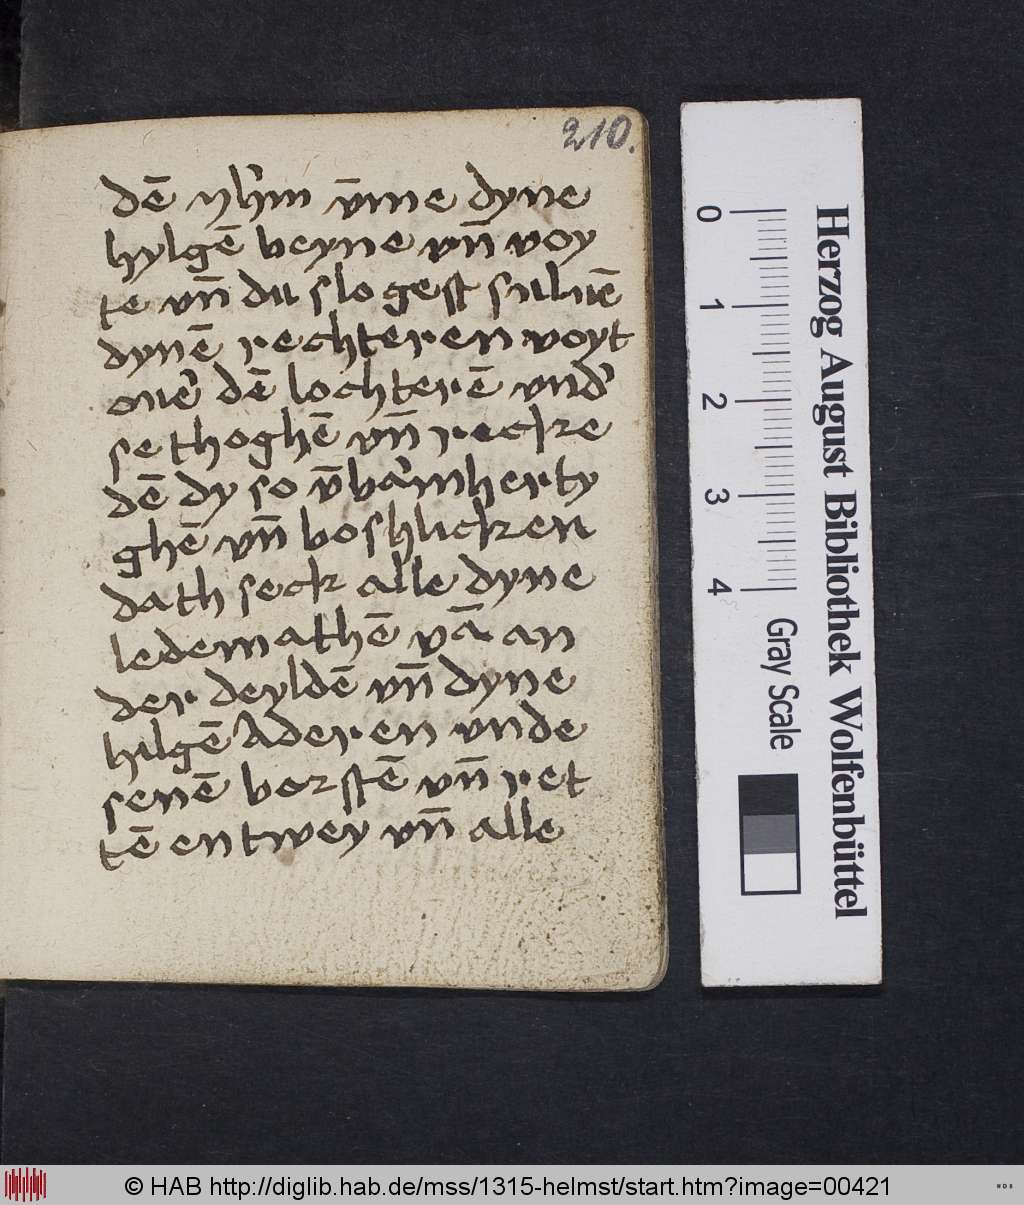 210.
dē yh'm v̄me dyne
hylgē beyne vn̄ voy
te vn̄ du slogest suluē
dynē rechteren voyt
ouer' dē lochterē vnd'
se thoghē vn̄ recke
dē dy so v̄bar'mherty
ghē vn̄ boshlicken
dath seck alle dyne
ledemathē vā an
der deyldē vn̄ dyne
hilgē Aderen vnde
senē borstē vn̄ ret
tē entwey vn̄ alle
Herzog August Bibliothek Wolfenbüttel
0 1 2 3 4 Gray Scale
© HAB http://diglib.hab.de/mss/1315-helmst/start.htm?image=00421